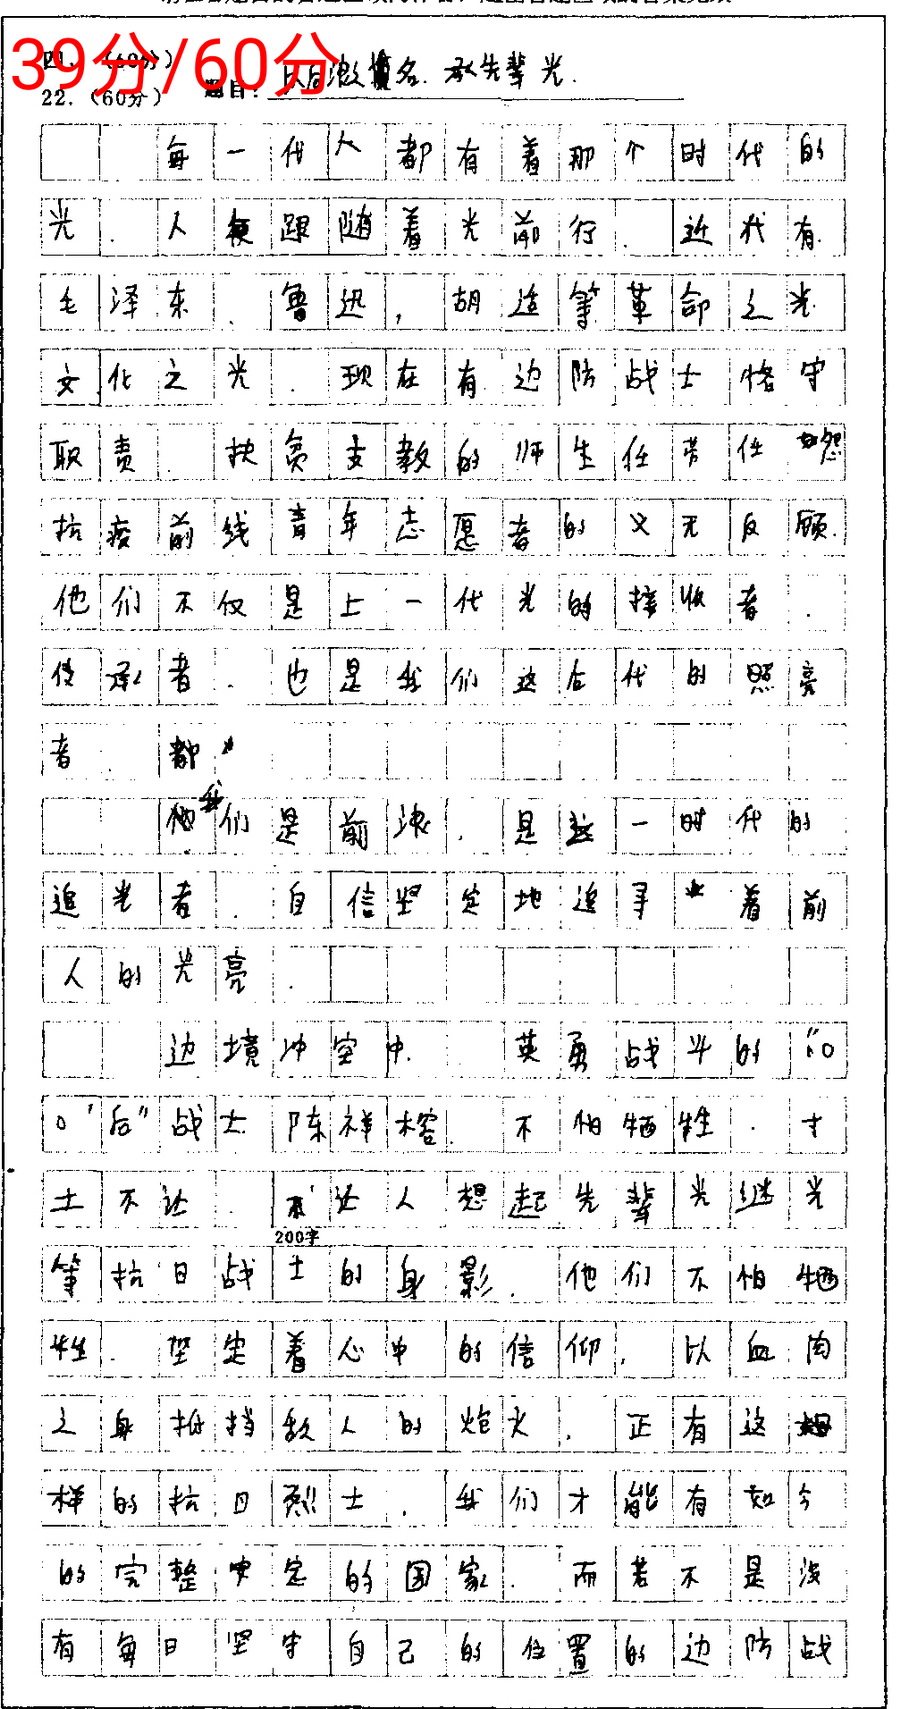 39分/60分
四、(60分)
22.(60分) 题目: 以后浪之名.承先辈光.
每一代人都有着那个时代的
光.人便跟随着光前行.近代有
毛泽东.鲁迅,胡适等革命之光
文化之光.现在有边防战士恪守
职责.扶贫支教的师生任劳任怨
抗疫前线青年志愿者的义无反顾.
他们不仅是上一代光的接收者.
传承者.也是我们这后代的照亮
者.
我们是前浪.是这一时代的
追光者.自信坚定地追寻着前
人的光亮.
边境冲突中.英勇战斗的"00
0'后"战士陈祥榕.不怕牺牲.寸
土不让.不让人想起先辈光继光
200字
等抗日战士的身影.他们不怕牺
牲.坚定着心中的信仰.以血肉
之身抵挡敌人的炮火.正有这
样的抗日烈士.我们才能有如今
的完整安定的国家.而若不是没
有每日坚守自己的位置的边防战